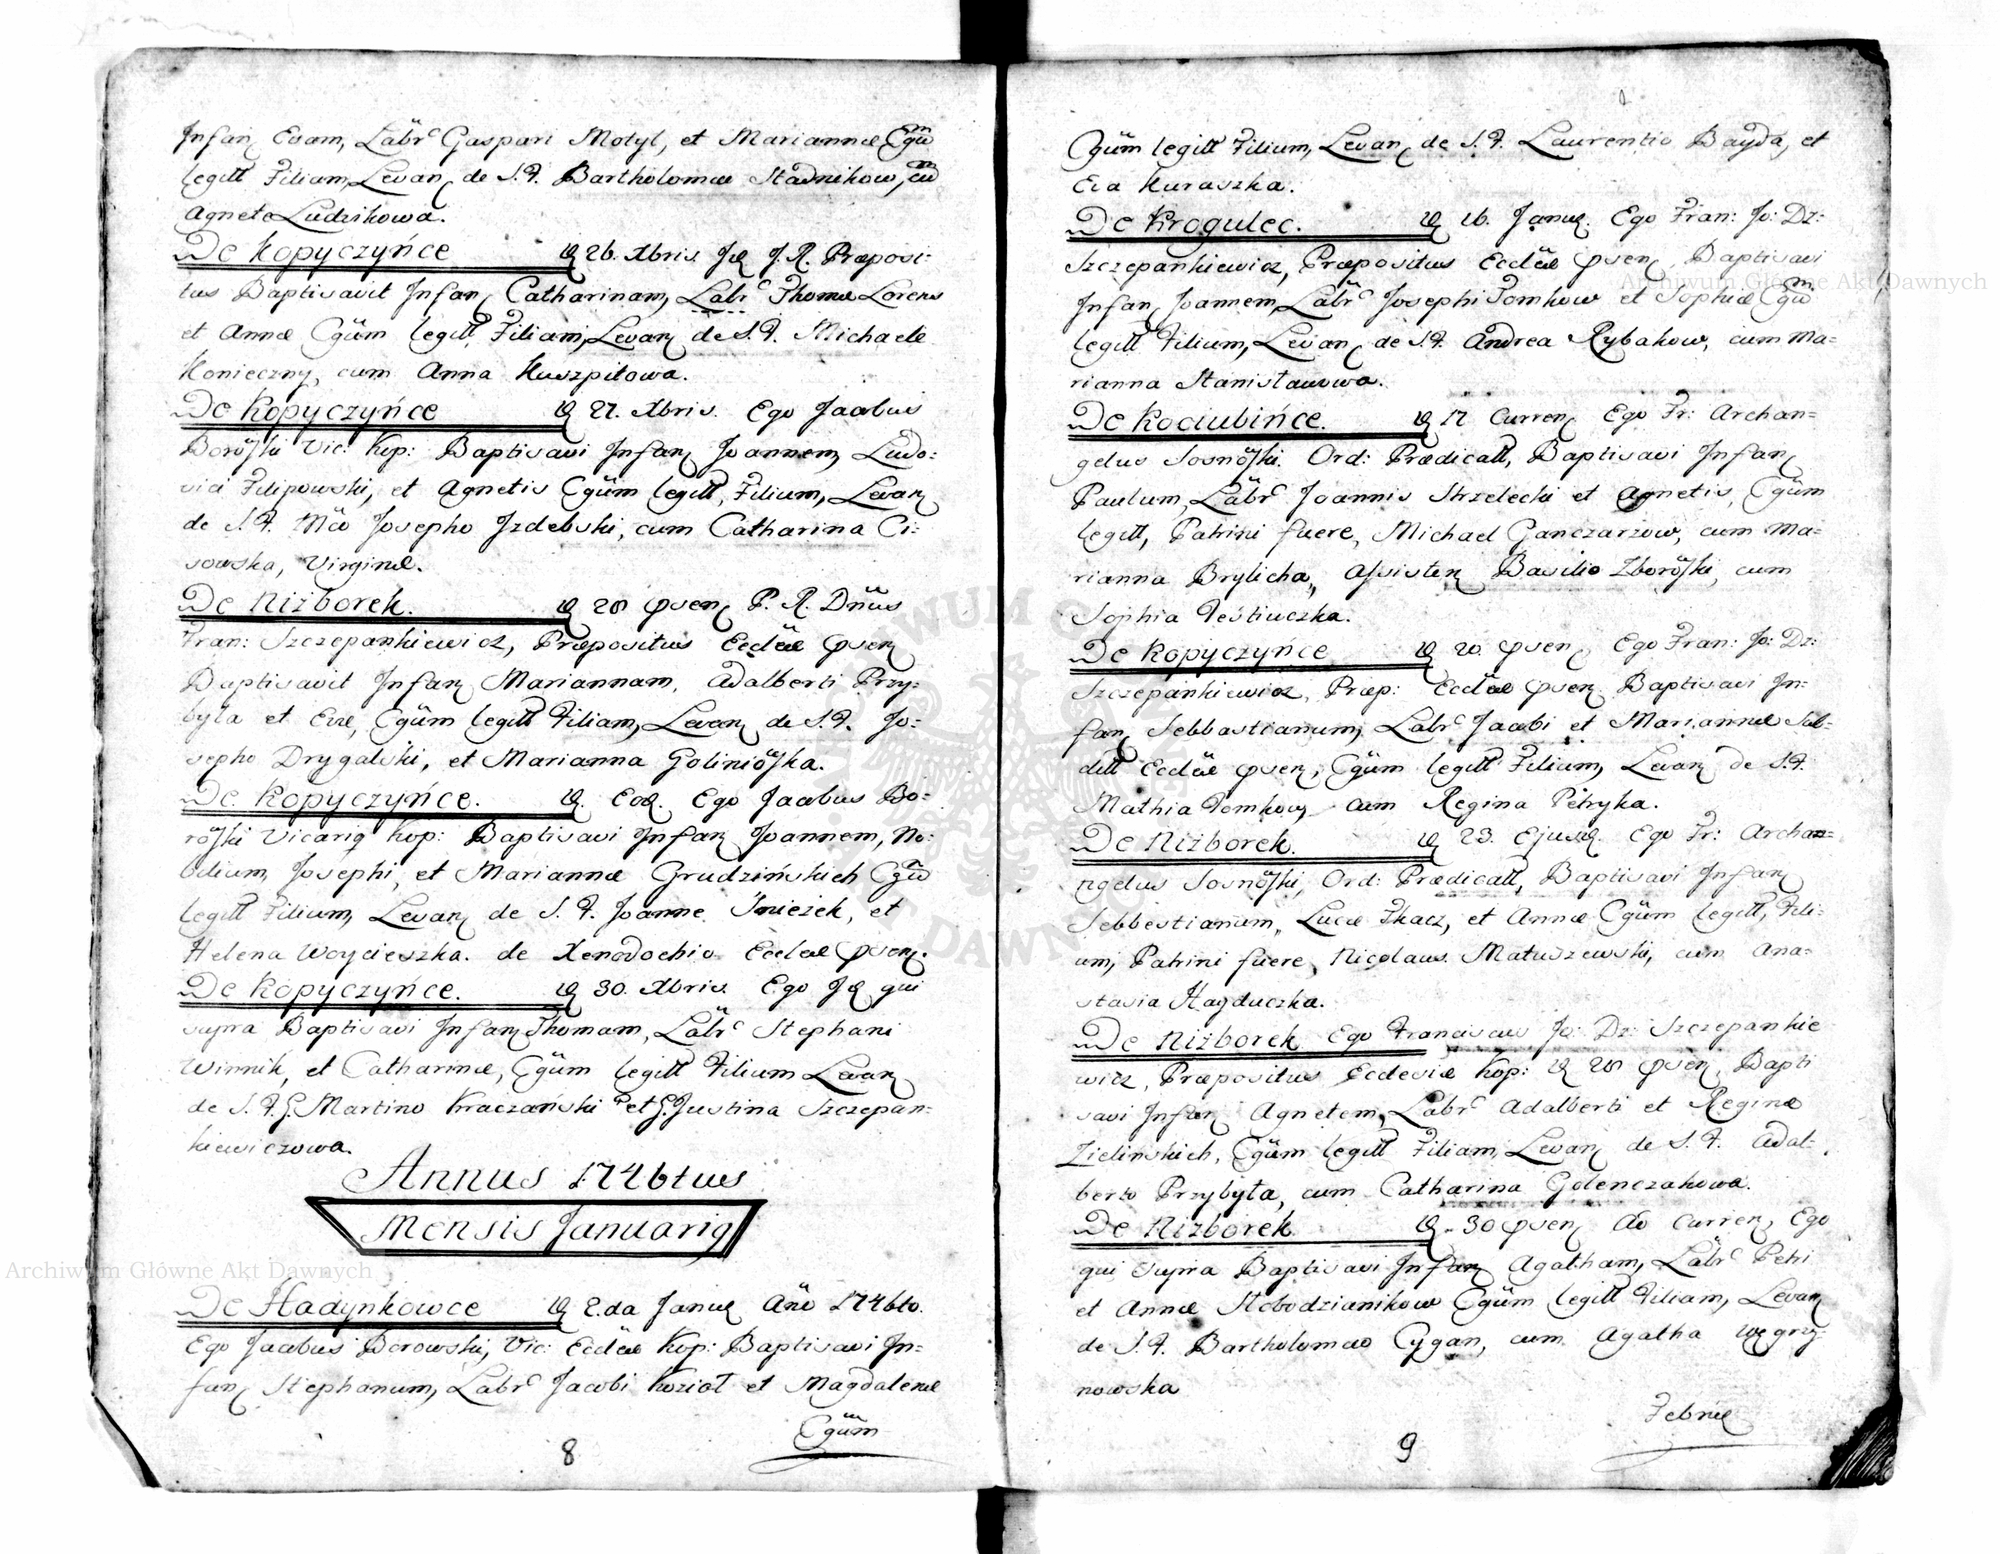 Infan Evam, Labr Gaspari Motyl, et Mariannæ Cgũ
legitt Filiam, Levan de S. F. Bartholomæo Stadnikow, cũ
Agnete Ludzikowa.
De Kopyczyńce 26. Xbris Id J. R. Præposi:
tus Baptisavit Infan Catharinam, Labr Thomæ Lorens
et Annæ Cgũm legitt Filiam, Levan de S. F. Michaele
Konieczny, cum Anna Kuszpitowa.
De Kopyczyńce 27. Xbris. Ego Jacobus
Borõski Vic: Kop: Baptisavi Infan Joannem, Ludo:
vici Filipowski, et Agnetis Cgũm legitt, Filium, Levan
de S. F. Mco Josepho Izdebski, cum Catharina Ci:
sowska, Virgine.
De Niżborek. 28 Psen P. R. Dnũs
Fran: Szczepankiewicz, Præpositus Ecclæ Psen
Baptisavit Infan Mariannam, Adalberti Przy:
byla et Evæ, Cgũm legitt Filiam, Levan de S. F. Jo:
sepho Drygalski, et Marianna Goliniõska.
De Kopyczyńce. Eod. Ego Jacobus Bo:
rõski Vicarig Kop: Baptisavi Infan Joannem, No:
bilium, Josephi, et Mariannæ Grudzińskich Cgũ
legitt Filium, Levan de S. F. Joanne Śnieżek, et
Helena Woycieszka. de Xenodochio Ecclæ Psen.
De Kopyczyńce. 30. Xbris. Ego Id qui
supra Baptisavi Infan Thomam, Labr Stephani
Winnik, et Catharinæ, Cgũm legitt Filium Levan
de S. F. G. Martino Kraczański et G. Justina Szczepan:
kiewiczowa.
Annus 1746tus
Mensis Januarig
De Hadynkowce 2.da Janu Año 1746to.
Ego Jacobus Borowski, Vic: Ecclæ Kop: Baptisavi In=
fan Stephanum, Labr Jacobi Kozioł et Magdalenæ
Cgũm
8
Cgũm legitt Filium, Levan de S. F. Laurentio Bayda, et
Eva Kuraszka.
De Krogulec. 16. Janu. Ego Fran: Jo: Dz:
Szczepankiewicz, Præpositus Ecclæ Psen, Baptisavi
Infan Joannem, Labr Josephi Tomkow et Sophiæ Cgũ
legitt Filium, Levan de S. F. Andrea Rybakow, cum Ma=
rianna Stanisławowa.
De Kociubińce. 17 Curren Ego Fr: Archan=
gelus Sosnõski. Ord: Prædicatt, Baptisavi Infan
Paulum, Labr Joannis Strzelecki et Agnetis, Cgũm
legitt, Patrini fuere, Michael Ganczarzow, cum Ma=
rianna Brylicha, Assisten Basilio Zborõski, cum
Sophia Testiuczka.
De Kopyczyńce 20. Psen, Ego Fran: Jo: Dz:
Szczepankiewicz, Præp: Ecclæ Psen Baptisavi In=
fan Sebbastianum, Labr Jacobi et Mariannæ Sub=
ditt Ecclæ Psen, Cgũm legitt Filium, Levan de S. F.
Mathia Tomkow cum Regina Petryka.
De Niżborek. 23. Ejusd. Ego Fr: Archa=
ngelus Sosnõski, Ord: Prædicatt, Baptisavi Infan
Sebbestianum, Lucæ Tkacz, et Annæ Cgũm legitt, Fili:
um, Patrini fuere, Nicolaus Matuszewski, cum Ana=
stasia Hayduczka.
De Niżborek Ego Franciscus Jo: Dz: Szczepankie
wicz, Præpositus Ecclesiæ Kop: 28 Psen, Bapti
savi Infan Agnetem, Labr Adalberti et Reginæ
Zielinskich, Cgũm legitt Filiam, Levan de S. F. Adal:
berto Przybyła, cum Catharina Golenczakowa.
De Niżborek 30 Psen Ao Curren, Ego
qui supra Baptisavi Infan Agatham, Labr Petri
et Annæ Słobodzianikow Cgũm legitt Filiam, Levan
de S. F. Bartholomæo Cygan, cum Agatha Węgry:
nowska
Febru
9
Archiwum Główne Akt Dawnych
Archiwum Główne Akt Dawnych